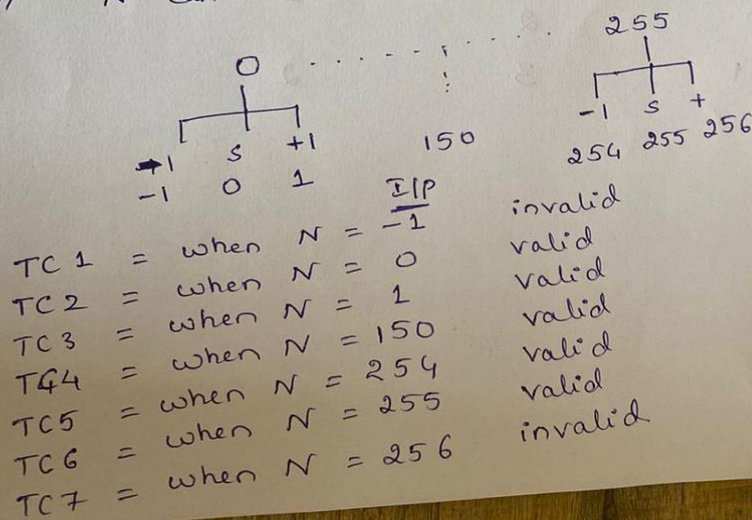 255
0
-1 S +
254 255 256
150
+1 S +1
-1 0 1
I/P
TC 1 = when N = -1 invalid
TC2 = when N = 0 valid
TC3 = when N = 1 valid
TC4 = when N = 150 valid
TC5 = when N = 254 valid
TC6 = when N = 255 valid
TC7 = when N = 256 invalid